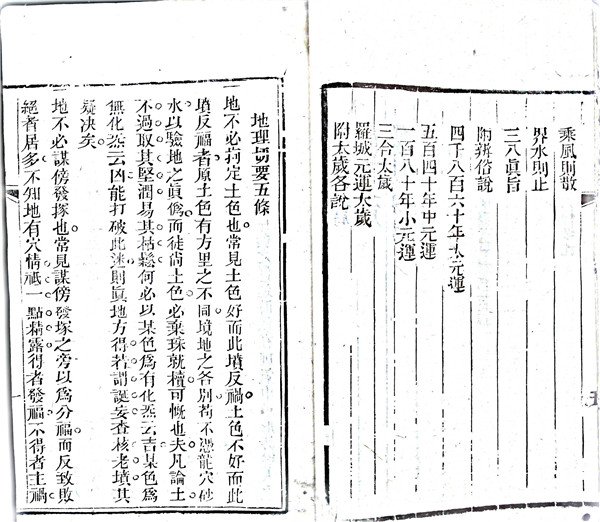 乘風則散
界水則止
三八眞旨
附辨俗說
四千八百六十年大元運
五百四十年中元運
一百八十年小元運
三合太歲
羅城元運太歲
附太歲各說
地理切要五條
一地不必拘定土色也常見土色好而此墳反禍土色不好而此
墳反福者原土色有方里之不同境地之各別苟不憑龍穴砂
水以驗地之眞僞而徒尙土色必棄珠就櫝可慨也夫凡論土
不過取其堅潤易其枯鬆何必以某色爲有化炁云吉某色爲
無化炁云凶能打破此迷則眞地方得若謂誕妄查核老墳其
疑決矣
一地不必謀傍發塚也常見謀傍發塚之旁以爲分福而反致敗
絕者居多不知地有穴情祗一點精露得者發福不得者主禍
一